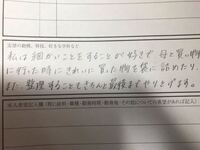 志望の動機、特技、好きな学科など
私は細かいことをすることが好きで母と買い物
に行った時にきれいに買った物を袋に詰めたり、
また、整理することできちんと最後までやりとげます。
本人希望記入欄（特に給料・職種・勤務時間・勤務地・その他についての希望があれば記入）